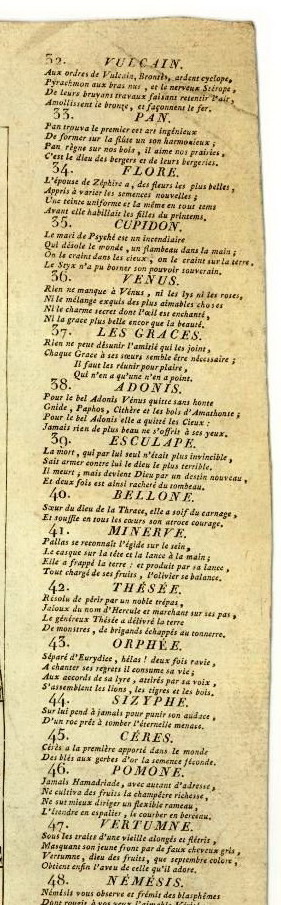 32. VULCAIN.
Aux ordres de Vulcain, Brontès, ardent cyclope,
Pyrachmon aux bras nus, et le nerveux Stérope,
De leurs bruyans travaux faisant retentir l'air,
Amollissent le bronze, et façonnent le fer.
33. PAN.
Pan trouva le premier cet art ingénieux
De former sur la flûte un son harmonieux;
Pan règne sur nos bois, il aime nos prairies,
C'est le dieu des bergers et de leurs bergeries.
34. FLORE.
L'épouse de Zéphire a, des fleurs les plus belles,
Appris à varier les semences nouvelles;
Une teinte uniforme et la même en tout tems
Avant elle habillait les filles du printems.
35. CUPIDON.
Le mari de Psyché est un incendiaire
Qui désole le monde, un flambeau dans la main;
On le craint dans les cieux, on le craint sur la terre,
Le Styx n'a pu borner son pouvoir souverain.
36. VENUS.
Rien ne manque à Vénus, ni les lys ni les roses,
Ni le mélange exquis des plus aimables choses
Ni le charme secret dont l'œil est enchanté,
Ni la grace plus belle encor que la beauté.
37. LES GRACES.
Rien ne peut désunir l'amitié qui les joint,
Chaque Grace à ses sœurs semble être nécessaire;
Il faut les réunir pour plaire,
Qui n'en a qu'une n'en a point.
38. ADONIS.
Pour le bel Adonis Vénus quitte sans honte
Gnide, Paphos, Cithère et les bois d'Amathonte;
Pour le bel Adonis elle a quitté les Cieux:
Jamais rien de plus beau ne s'offrit à ses yeux.
39. ESCULAPE.
La mort, qui par lui seul n'était plus invincible,
Sait armer contre lui le dieu le plus terrible.
Il meurt; mais devient Dieu par un destin nouveau,
Et deux fois est ainsi racheté du tombeau.
40. BELLONE.
Sœur du dieu de la Thrace, elle a soif du carnage,
Et souffle en tous les cœurs son atroce courage.
41. MINERVE.
Pallas se reconnaît l'égide sur le sein,
Le casque sur la tête et la lance à la main;
Elle a frappé la terre: et produit par sa lance,
Tout chargé de ses fruits, l'olivier se balance.
42. THÉSÉE.
Résolu de périr par un noble trépas,
Jaloux du nom d'Hercule et marchant sur ses pas,
Le généreux Thésée a délivré la terre
De monstres, de brigands échappés au tonnerre.
43. ORPHÉE.
Séparé d'Eurydice, hélas! deux fois ravie,
A chanter ses regrets il consume sa vie;
Aux accords de sa lyre, attirés par sa voix,
S'assemblent les lions, les tigres et les bois.
44. SIZYPHE.
Sur lui pend à jamais pour punir son audace,
D'un roc prêt à tomber l'éternelle menace.
45. CÉRES.
Cérès a la première apporté dans le monde
Des blés aux gerbes d'or la semence féconde.
46. POMONE.
Jamais Hamadriade, avec autant d'adresse,
Ne cultiva des fruits la champêtre richesse,
Ne sut mieux diriger un flexible rameau;
L'étendre en espalier, le courber en berceau.
47. VERTUMNE.
Sous les traits d'une vieille alongés et flétris,
Masquant son jeune front par de faux cheveux gris,
Vertumne, dieu des fruits, que septembre colore,
Obtient enfin l'aveu de celle qu'il adore.
48. NÉMÉSIS.
Némésis vous observe et frémit des blasphèmes
Dont rougit à vos yeux